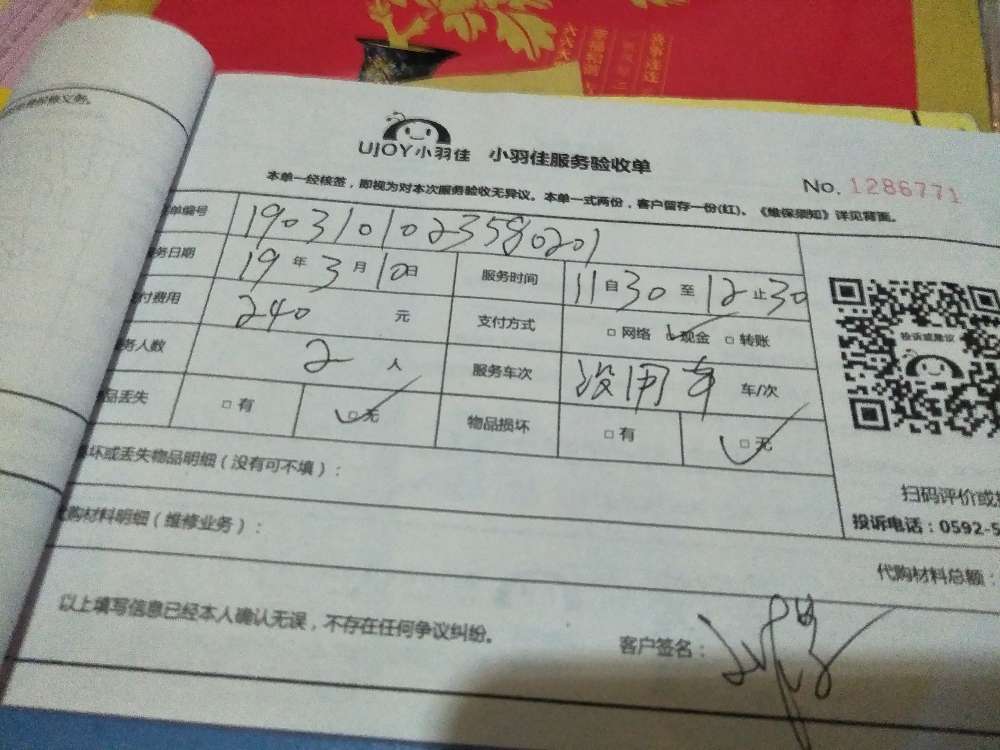 UJOY小羽佳 小羽佳服务验收单
No. 1286771
本单一经核签，即视为对本次服务验收无异议。本单一式两份，客户留存一份(红)。《维保须知》详见背面。
单编号 1903101023580201
务日期 19 年 3 月 10 日 服务时间 11 自 30 至 12 止 30
付费用 240 元 支付方式 □ 网络 □ 现金 □ 转账
务人数 2 人 服务车次 没用车 车/次
品丢失 □ 有 □ 无 物品损坏 □ 有 □ 无
投诉或建议
坏或丢失物品明细（没有可不填）：
扫码评价或
投诉电话：0592-5
购材料明细（维修业务）：
代购材料总额：
以上填写信息已经本人确认无误，不存在任何争议纠纷。
客户签名：